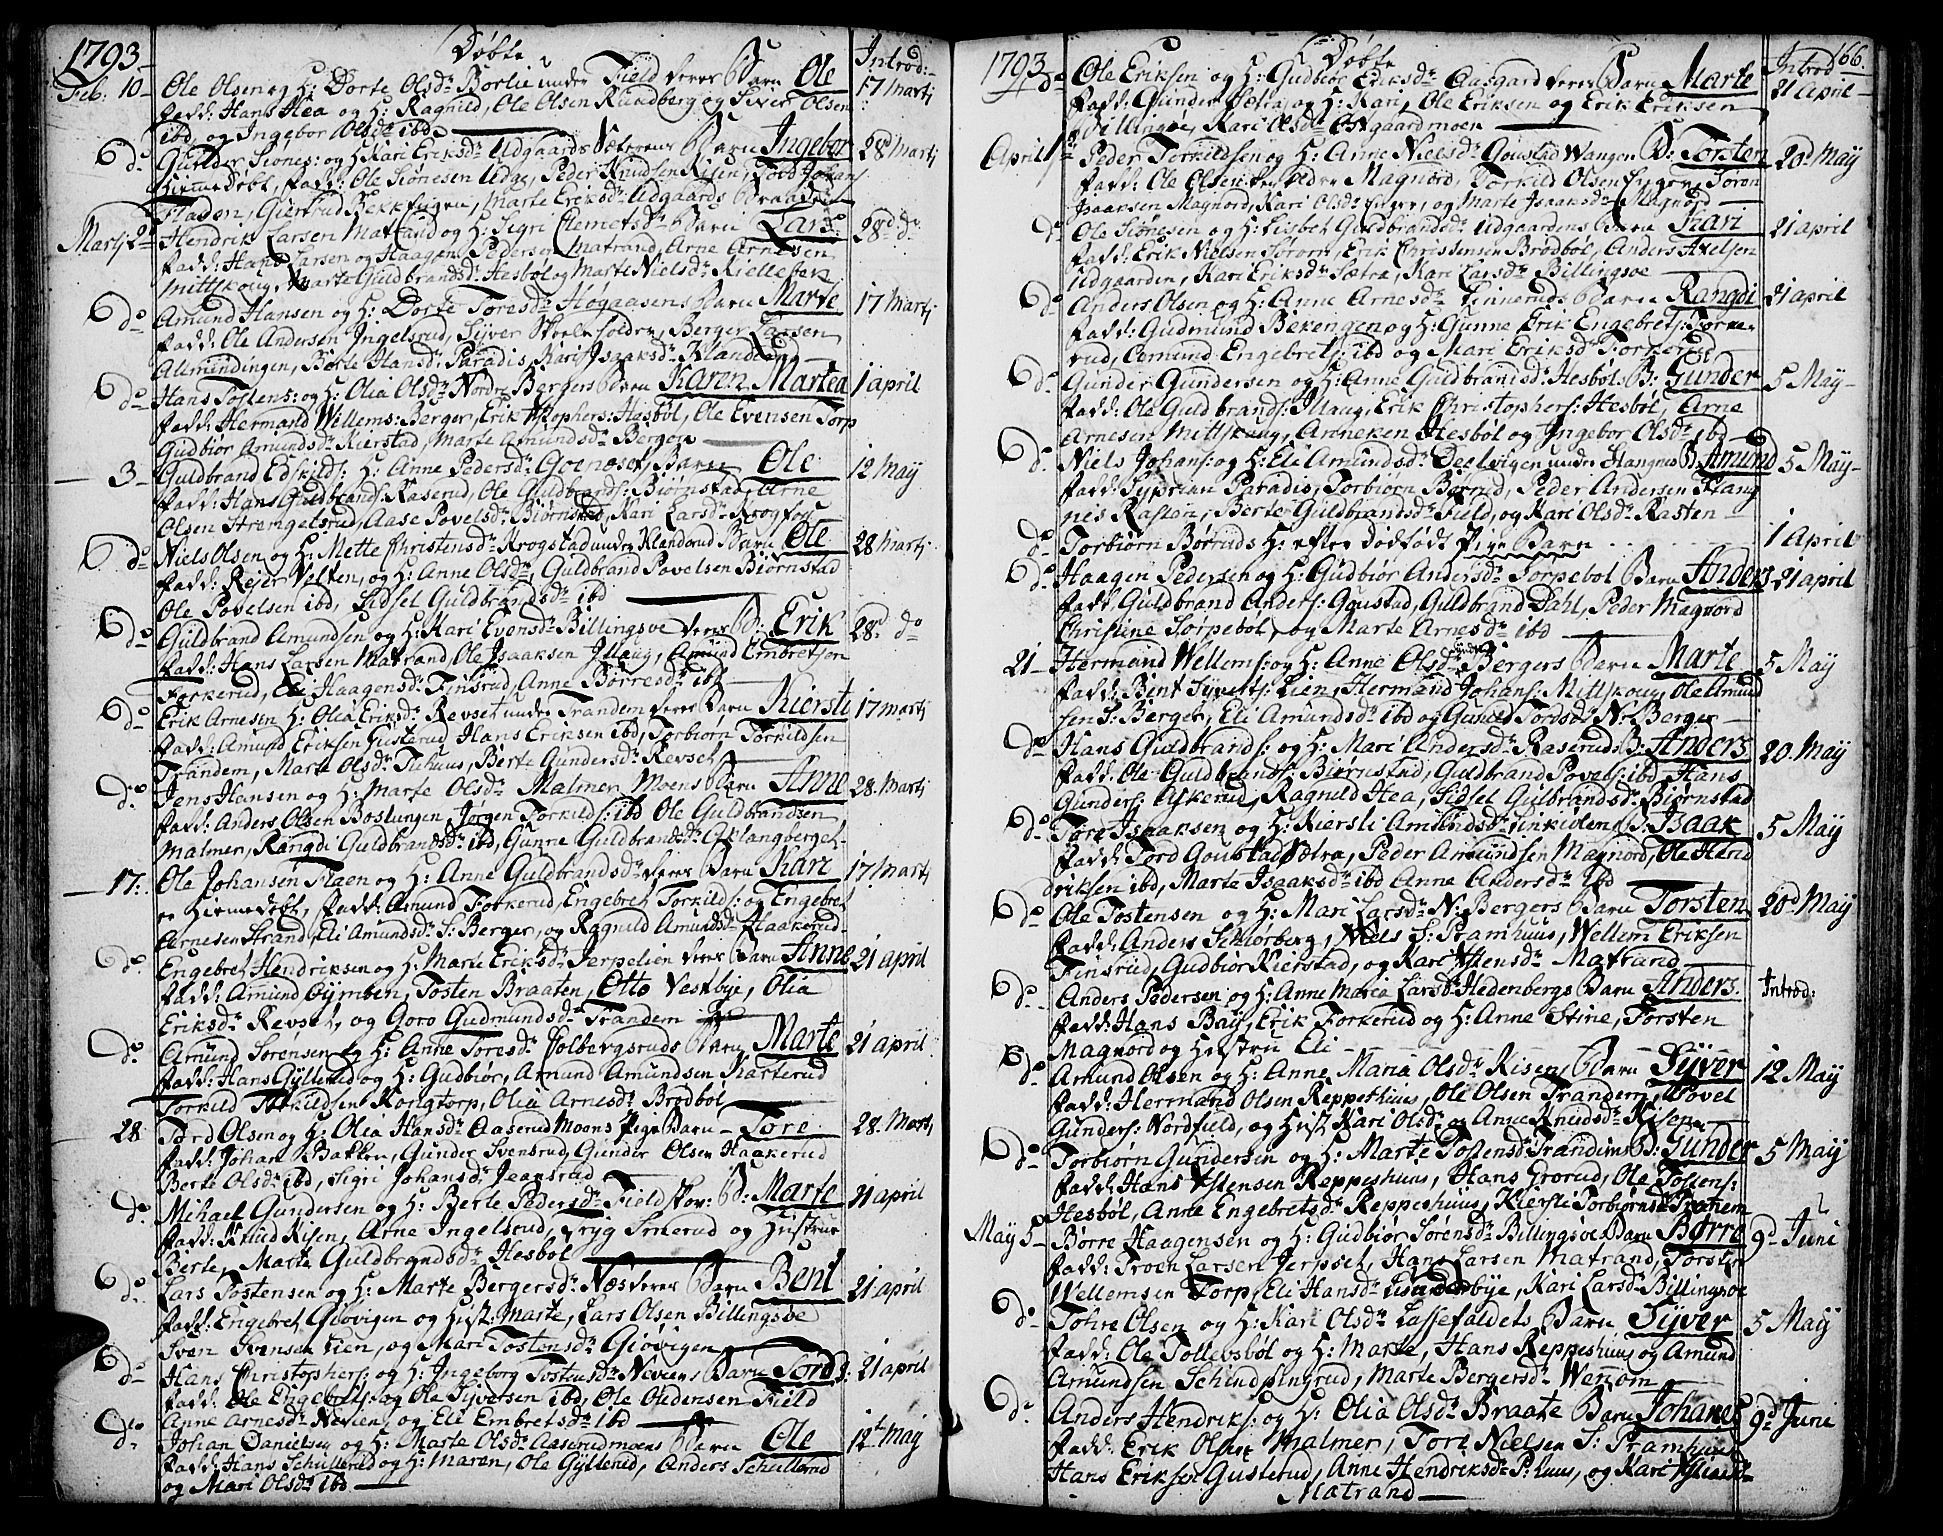 1793 Døbte Introd:
Feb. 10 Ole Olsen og H: Dorte Olsdr Børlie under Field deres Barn Ole 17 Martj
Fadd: Hans Hea og H: Ragnild, Ole Olsen Rundberg og Siver Olsen
ibd, og Ingebor Olsdr ibd
do Gulder Siønes: og H Kari Eriksdr Udgaards Barn Ingebor 28 Martj
Hiemedøbt, Fadd: Ole Siønesen Udg, Peder Knudsen Risen, Tord Johans
Giertrud Bekkeugen, Marte Eriksdr Udgaards
Martj 2 Hendrik Larsen Matrand og H: Sigri Clemetsdr Barn Lars 28d do
Fadd: Hans Larsen og Haagen Pedersen Matrand, Arne Arnesen
Mittskoug, Marte Guldbrandsdr Hesbøl og Marte Nielsdr
do Amund Hansen og H: Dorte Toresdr Høgaasens Barn Marte 17 Martj
Fadd: Ole Andersen Ingelsrud, Syver, Berger Larsen
Allmindingen, Børte Hansdr Paradis, Kari Isaaksdr
do Hans Tostens: og H: Olia Olsdr Nordre Bergers Barn Karen Martea 1 april
Fadd: Hermand Willems: Berger, Erik Hesbøl, Ole Evensen Torp
Gudbiør Amundsdr Kierstad, Marte Amundsdr Berger
3 Guldbrand H: Anne Pedersdr Barn Ole 12 May
Fadd: Hans Guldbrands: Raserud, Ole Guldbrands: Biørnstad, Arne
Olsen Strengelsrud, Aase Povelsdr Biørnstad, Kari Larsdr Krogfos
do Niels Olsen og H: Mette Christensdr Krogstad under Barn Ole 28 Martj
Fadd: Rejer Velten, og H: Anne Olsdr, Guldbrand Povelsen Biørnstad
Ole Povelsen ibd, Sidsel Guldbrandsdr ibd
do Guldbrand Amundsen og H: Kari Evensdr Billingsøe deres B: Erik 28d do
Fadd: Hans Larsen Matrand, Ole Isaaksen, Amund Embretsen
Forkerud, Eli Haagensdr Finsrud, Anne Børresdr ibd
do Erik Arnesen H: Olia Eriksdr Revset under Trandem deres Barn Kiersti 17 Martj
Fadd: Amund Eriksen Gusterud, Hans Eriksen ibd, Torbiørn Torkildsen
Trandem, Marte Olsdr, Berte Gundersdr Revset
do Jens Hansen og H: Marte Olsdr Malmer Moens Barn Anne 28 Martj
Fadd: Anders Olsen Boslungen, Jørgen Torkilds: ibd Ole Guldbrandsen
Malmer, Rangdi Guldbrandsdr ibd, Gunne Guldbrandsdr
17 Ole Johansen og H: Anne Guldbrandsdr deres Barn Kari 17 Martj
er Hiemedøbt, Fadd: Amund Forkerud, Engebret Torkilds: og Engebret
Arnesen Strand, Eli Amundsdr S: Berger, og Ragnild Amundsdr Haakerud
do Engebret Hendriksen og H: Marte Eriksdr Jerpelien deres Barn Anne 21 april
Fadd: Amund, Tosten Braaten, Otto Vestbye, Olia
Eriksdr Revset, og Goro Gudmundsdr Trandem
do Amund Sørensen og H: Anne Toresdr Barn Marte 21 april
Fadd: Hans Gyllerud og H: Gudbiør, Amund Amundsen
Torkild Torkildsen Kongtorp, Olia Arnesdr Brødbøl
28 Tord Olsen og H: Olia Hansdr Aaserud Moens Pige Barn Tore 28. Martj
Fadd: Johan Bakken, Gunder Svensrud, Gunder Olsen Haakerud
Berte Olsdr ibd, Sigri Johansdr
do Michael Gundersen og H: Berte Pedersdr Fieldskov: B: Marte 21 april
Fadd: Knud Risen, Arne Ingelsrud, og Hustrue
Berte, Marte Guldbrandsdr Hesbøl
do Lars Tostensen og H: Marte Bergersdr Næs deres Barn Bent 21 april
Fadd: Engebret Giøvigen og Hust: Marte, Lars Olsen Billingsøe
Sven Svensen Lien, og Mari Tostensdr Giøvigen
do Hans Christophers: og H: Ingeborg Tostensdr Barn Tord 21 april
Fadd: Ole Engebrets: og Ole Syvertsen ibd, Ole Field
Anne Arnesdr, og Eli Embretsdr ibd
do Johan Danielsen og H: Marte Olsdr Aaserudmoens Barn Ole 12t May
Fadd: Hans Schullerud og H: Maren, Ole Gyllerud, Anders Schullerud
og Mari Olsdr ibd
1793 Døbte Introd 166.
do Ole Eriksen og H: Gudbiør Eriksdr Aasgaard deres Barn Marte 21 april
Fadd: Gunder Sætra, og H: Kari, Ole Eriksen og Erik Eriksen
Billingsøe, Kari Olsdr Østgaardmoen
April 1 Peder Torkildsen og H: Anne Nielsdr Goustad Wangen B: Torsten 20d May
Fadd: Ole Olsen Magnord, Torkild Olsen, Søren
Isaaksen Magnord, Kari Olsdr, og Marte Isaaksdr Magnord
do Ole Siønesen og H: Lisbet Guldbrandsdr Udgaardens Barn Kari 21 april
Fadd: Erik Nielsen, Erik Christensen Brødbøl, Anders Axelsen
Udgaarden, Kari Eriksdr Sætra, Kari Larsdr Billingsøe
do Anders Olsen og H: Anne Arnesdr Barn Rangdi 21 april
Fadd: Gudmund Bekengen og H: Gunne Erik Engebrets: Forke-
rud, Amund Engebrets: ibd og Mari Eriksdr Forkerud
do Gunder Gundersen og H: Anne Guldbrandsdr Hesbøl: B: Gunder 5 May
Fadd: Ole Guldbrands:, Erik Christophers: Hesbøl, Arne
Arnesen Mittskoug, Anneken Hesbøl og Ingebor Olsdr ibd
do Niels Johans: og H: Eli Amundsdr under Hangnes B: Amund 5 May
Fadd: Syprian Paradis, Torbiørn Børrud, Peder Andersen Hang
nes Rasten, Berte Guldbrandsdr Field, og Kari Olsdr Rasten
do Torbiørn Børruds H: efter dødfødt Pige Barn 1 April
do Haagen Pedersen og H: Gudbiør Andersdr Torpebøl Barn Anders 21 april
Fadd Guldbrand Anders: Goustad, Guldbrand Dahl, Peder Magnord
Christine Torpebøl, og Marte Arnesdr ibd
21 Hermand Wellems: og H: Anne Olsdr Bergers Barn Marte 5 May
Fadd: Bent Syverts: Lien, Hermand Johans: Mittskoug, Ole Amund
sen S: Berger, Eli Amundsdr ibd og Gunild Tordsdr N: Berger
do Hans Guldbrands: og H: Mari Andersdr Raseruds B: Anders 20 May
Fadd: Ole Guldbrands: Biørnstad, Guldbrand Povels: ibd, Hans
Gunders: Askerud, Ragnild Hea, Sidsel Gulbrandsdr Biørnstad
do Tore Isaaksen og H: Kiersti Amundsdr B: Isaak 5 May
Fadd: Tord Goustad Sætra, Peder Amundsen Magnord, Ole Hend
driksen ibd, Marte Isaaksdr ibd Anne Andersdr ibd
do Ole Tostensen og H: Mari Larsdr N: Bergers Barn Torsten 20d May
Fadd: Anders Schiørberg, Niels S: Pramhuus, Wellem Eriksen
Finsrud, Gudbiør Kierstad, og Kari Matrand
do Anders Pedersen og H: Anne Maria Larsdr Hedenbergs Barn Anders. Introd:
Fadd: Hans Bay, Erik Forkerud og H: Anne Stine, Torsten
Magnord og Hustru Eli
do Amund Olsen og H: Anne Maria Olsdr Risen, Barn Syver 12 May
Fadd: Hermand Olsen Reppeshuus, Ole Olsen Trandem, Povel
Gunders: Nordfield, og Hust Kari Olsdr og Anne Knudsdr Risen
do Torbiørn Gundersen og H: Marte Tostensdr Trandems B: Gunder 5 May
Fadd: Hans Reppeshuus, Hans Grorud, Ole Tostens:
Hesbøl, Anne Engebretsdr Reppeshuus, Kiersti Torbiørnsdr Tranem
May 5 Børre Haagensen og H: Gudbiør Sørensdr Billingsøe Barn Børre 9d Juni
Fadd: Proen Larsen Jerpset, Hans Larsen Matrand, Torsten
Wellemsen Torp, Eli Hansdr, Kari Larsdr Billingsøe
do Tohre Olsen og H: Kari Olsdr Lassefaldets Barn Syver 5 May
Fadd: Ole Tollevsbøl og H: Marte, Hans Reppeshuus og Amund
Amundsen, Marte Bergersdr
do Anders Hendriks: og H: Olia Olsdr Braate Barn Johanes 9d Juni
Fadd: Erik Olsen Malmer, Tore Nielsen S: Pramhuus
Hans Eriksen Gusterud, Anne Hendriksdr P:huus, og Kari
Matrand